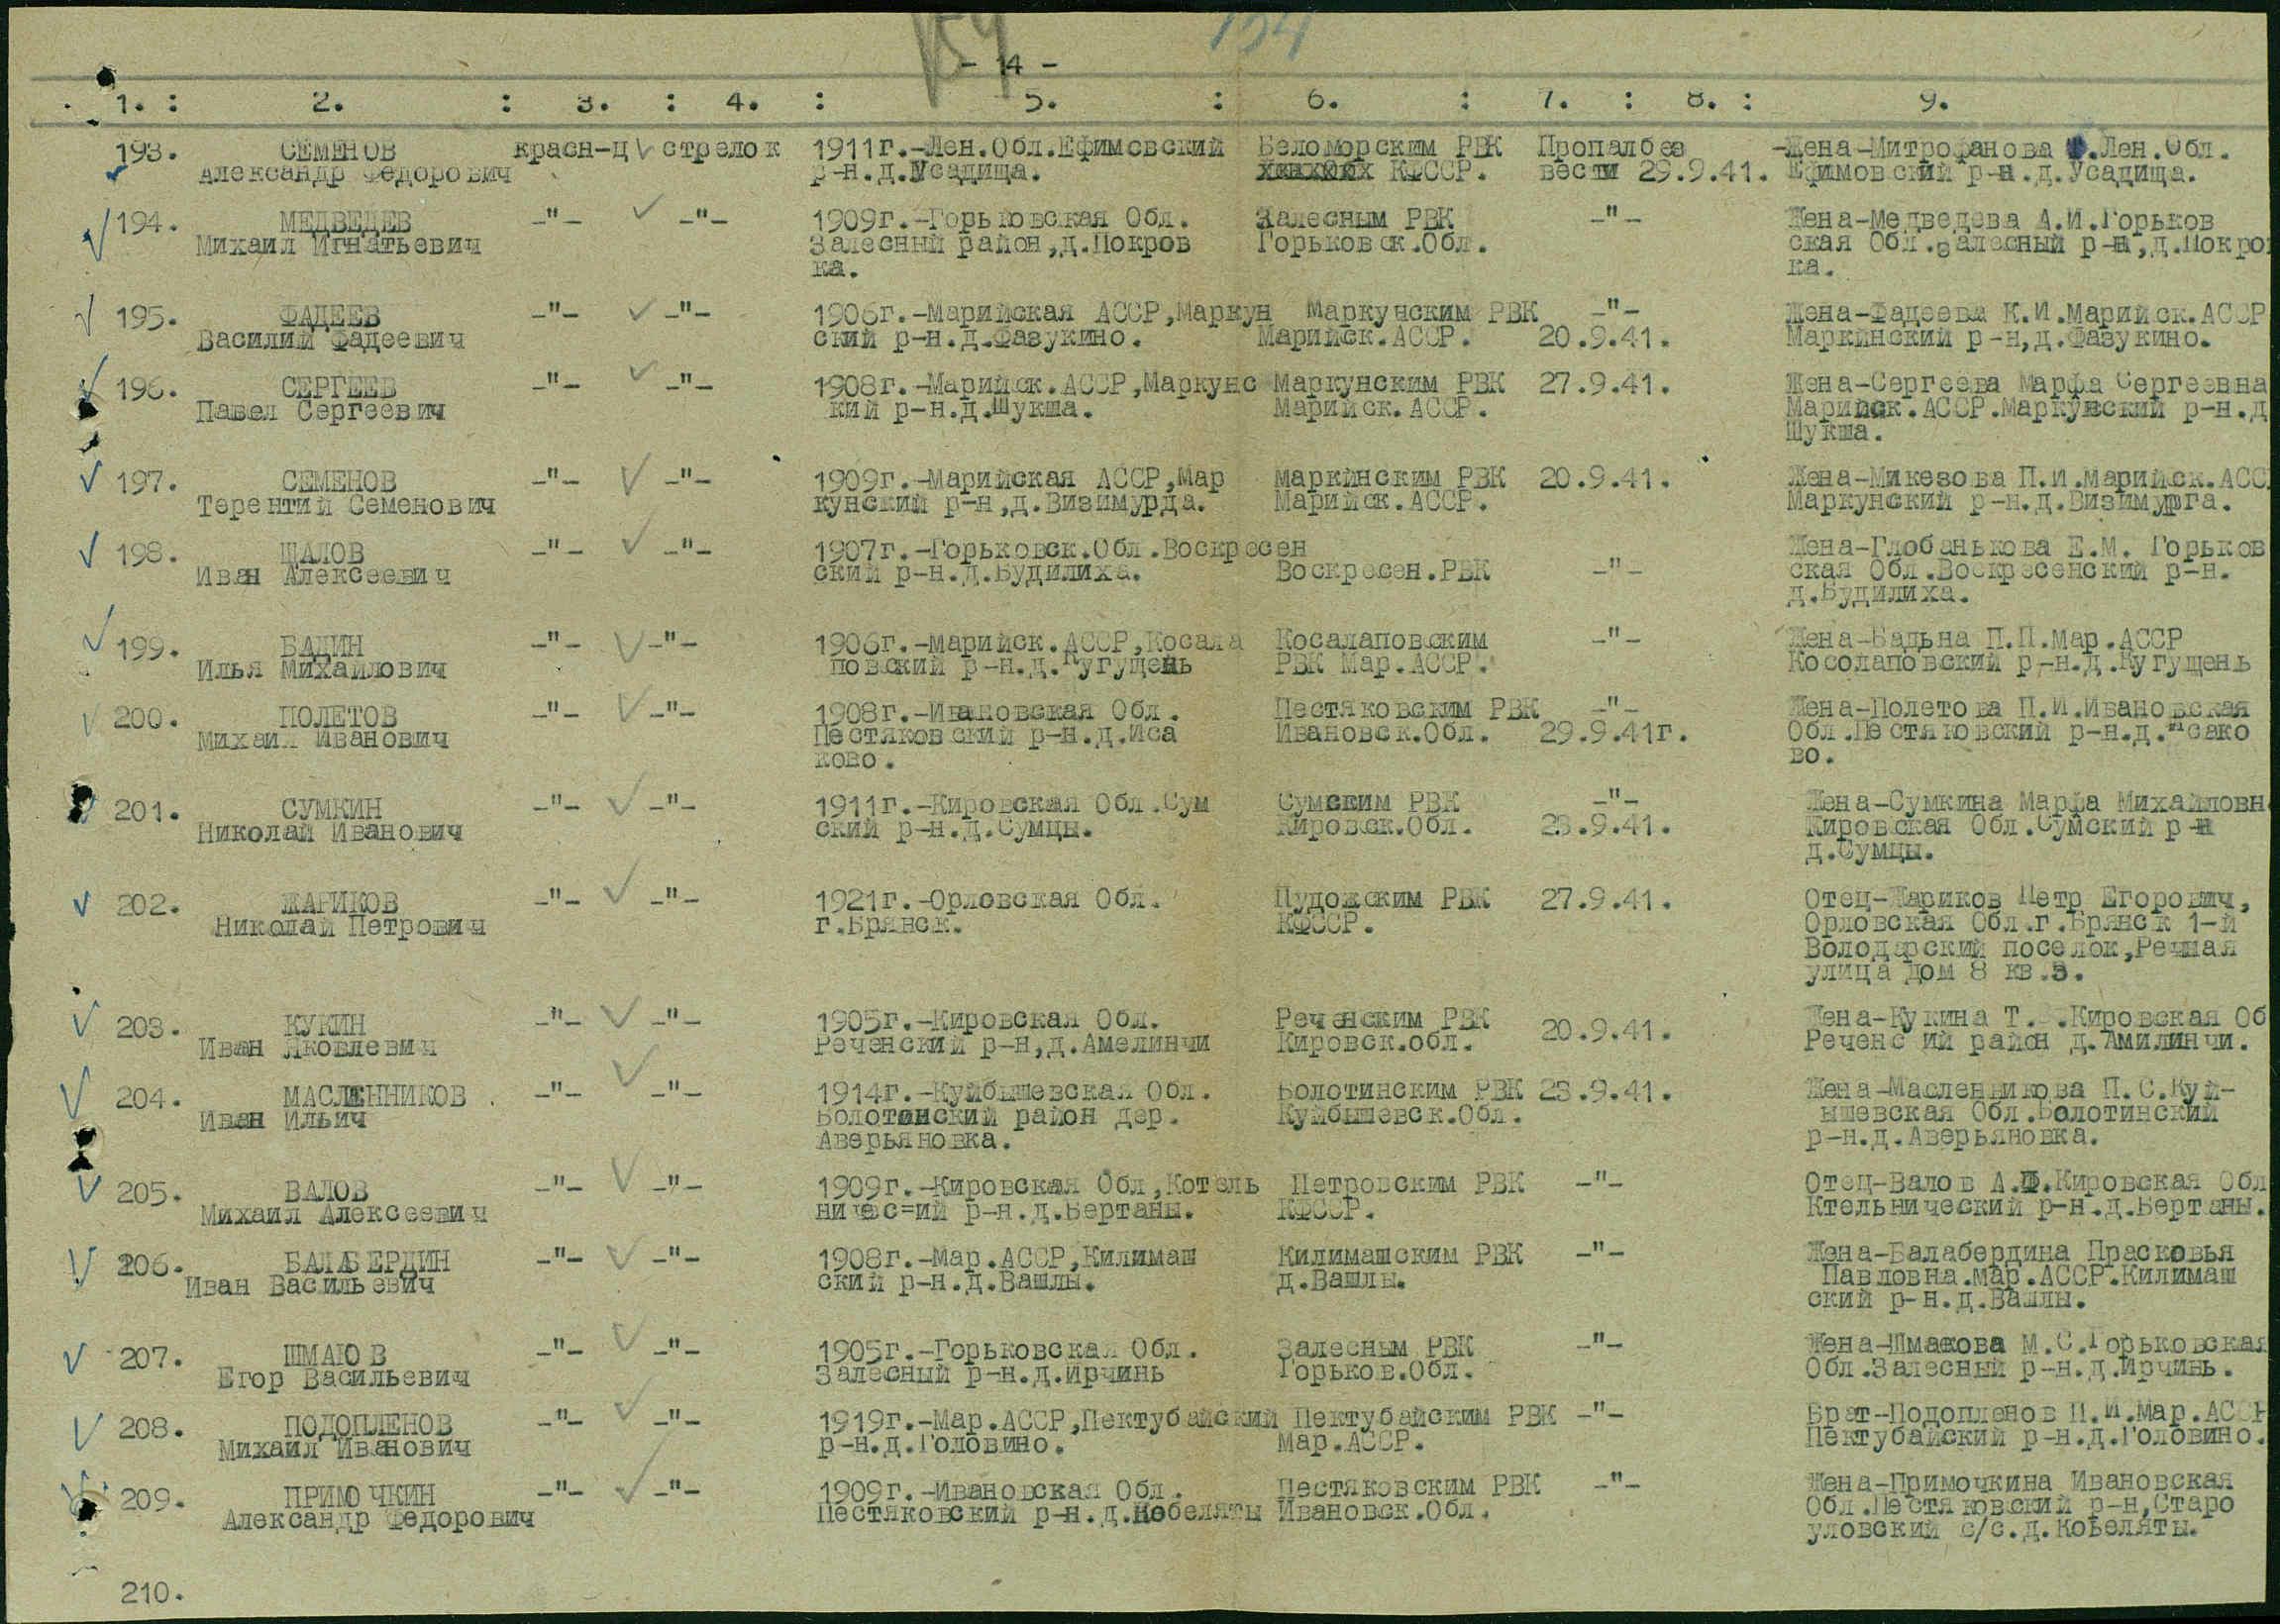 154 154
- 14 -
1. : 2. : 3. : 4. : 5. : 6. : 7. : 8. : 9.
193. СЕМЕНОВ красн-ц стрелок 1911г.-Лен.Обл.Ефимовский Беломорским РВК Пропал без -Жена-Митрофанова Лен.Обл.
Александр Федорович р-н.д.Усадища. КФССР. вести 29.9.41. Ефимовский р-н.д.Усадища.
194. МЕДВЕДЕВ -"- -"- 1909г.-Горьковская Обл. Залесным РВК -"- Жена-Медведева А.И.Горьков
Михаил Игнатьевич Залесный район,д.Покров Горьковск.Обл. ская Обл.Залесный р-н,д.Покров
ка. ка.
195. ФАДЕЕВ -"- -"- 1906г.-Марийская АССР,Маркун Маркунским РВК -"- Жена-Фадеева К.И.Марийск.АССР
Василий Фадеевич ский р-н.д.Фазукино. Марийск.АССР. 20.9.41. Маркинский р-н,д.Фазукино.
196. СЕРГЕЕВ -"- -"- 1908г.-Марийск.АССР,Маркунс Маркунским РВК 27.9.41. Жена-Сергеева Марфа Сергеевна
Павел Сергеевич кий р-н.д.Шукша. Марийск.АССР. Марийск.АССР.Маркунский р-н.д
Шукша.
197. СЕМЕНОВ -"- -"- 1909г.-Марийская АССР,Мар Маркинским РВК 20.9.41. Жена-Микезова П.И.Марийск.АСС
Терентий Семенович кунский р-н,д.Визимурда. Марийск.АССР. Маркунский р-н.д.Визимурга.
198. ШАЛОВ -"- -"- 1907г.-Горьковск.Обл.Воскресен Жена-Глобанькова Е.М. Горьков
Иван Алексеевич ский р-н.д.Будилиха. Воскресен.РВК -"- ская Обл.Воскресенский р-н.
д.Будилиха.
199. БАДИН -"- -"- 1906г.-Марийск.АССР,Косала Косалаповским -"- Жена-Бадьна П.П.Мар.АССР
Илья Михайлович повский р-н.д.Кугущень РВК Мар.АССР. Косолаповский р-н.д.Кугущень
200. ПОЛЕТОВ -"- -"- 1908г.-Ивановская Обл. Пестяковским РВК -"- Жена-Полетова П.И.Ивановская
Михаил Иванович Пестяковский р-н.д.Иса Ивановск.Обл. 29.9.41г. Обл.Пестяковский р-н.д.Исако
ково. во.
201. СУМКИН -"- -"- 1911г.-Кировская Обл.Сум Сумским РВК -"- Жена-Сумкина Марфа Михайловн
Николай Иванович ский р-н.д.Сумцы. Кировск.Обл. 23.9.41. Кировская Обл.Сумский р-н
д.Сумцы.
202. ЖАРИКОВ -"- -"- 1921г.-Орловская Обл. Пудожским РВК 27.9.41. Отец-Жариков Петр Егорович,
Николай Петрович г.Брянск. КФССР. Орловская Обл.г.Брянск 1-й
Володарский поселок,Речная
улица дом 8 кв.3.
203. КУКИН -"- -"- 1905г.-Кировская Обл. Реченским РВК 20.9.41. Жена-Кукина Т. .Кировская Об
Иван Яковлевич Реченский р-н,д.Амелинчи Кировск.обл. Реченс ий район д.Амилинчи.
204. МАСЛЕННИКОВ -"- -"- 1914г.-Куйбышевская Обл. Болотинским РВК 23.9.41. Жена-Масленникова П.С.Куй-
Иван Ильич Болотинский район дер. Куйбышевск.Обл. ышевская Обл.Болотинский
Аверьяновка. р-н.д.Аверьяновка.
205. ВАЛОВ -"- -"- 1909г.-Кировская Обл,Котель Петровским РВК -"- Отец-Валов А.Д.Кировская Обл
Михаил Алексеевич ничес=ий р-н.д.Бертаны. КФССР. Ктельнический р-н.д.Бертаны.
206. БАЛАБЕРДИН -"- -"- 1908г.-Мар.АССР,Килимаш Килимашским РВК -"- Жена-Балабердина Прасковья
Иван Васильевич ский р-н.д.Вашлы. д.Вашлы. Павловна.Мар.АССР.Килимаш
ский р-н.д.Вашлы.
207. ШМАКОВ -"- -"- 1905г.-Горьковская Обл. Залесным РВК -"- Жена-Шмакова М.С.Горьковская
Егор Васильевич Залесный р-н.д.Ирчинь Горьков.Обл. Обл.Залесный р-н.д.Ирчинь.
208. ПОДОПЛЕНОВ -"- -"- 1919г.-Мар.АССР,Пектубайский Пектубайским РВК -"- Брат-Подопленов П.И.Мар.АССР
Михаил Иванович р-н.д.Головино. Мар.АССР. Пектубайский р-н.д.Головино.
209. ПРИМОЧКИН -"- -"- 1909г.-Ивановская Обл. Пестяковским РВК -"- Жена-Примочкина Ивановская
Александр Федорович Пестяковский р-н.д.Кобеляты Ивановск.Обл. Обл.Пестяковский р-н,Старо
уловский с/с.д.Кобеляты.
210.